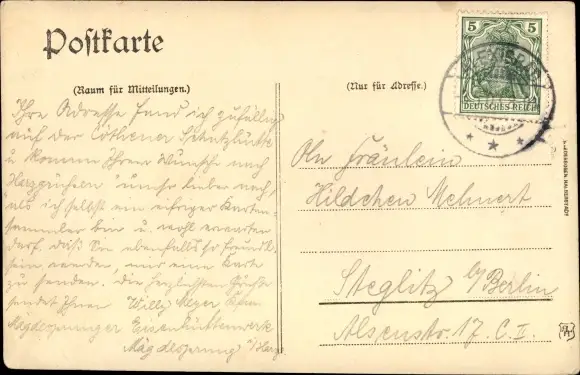 Postkarte
(Raum für Mitteilungen.)
Ihre Adresse fand ich zufällig
auf der Cöthener Schutzhütte
u komme Ihrem Wunsche nach
Herzgrüßen umso lieber nach,
als ich selbst ein eifriger Karten-
sammler bin u. wohl erwarten
darf, daß Sie ebenfalls so freundl.
sein werden, mir eine Karte
zu senden. Die herzlichsten Grüße
sendet Ihnen Willy Meyer
Magdesprunger Eisenhüttenwerk
Mägdesprung a/Harz
(Nur für Adresse.)
5 5
DEUTSCHES REICH
An Fräulein
Hildchen Mehnert
Steglitz b/Berlin
Alsenstr. 17. C. II.